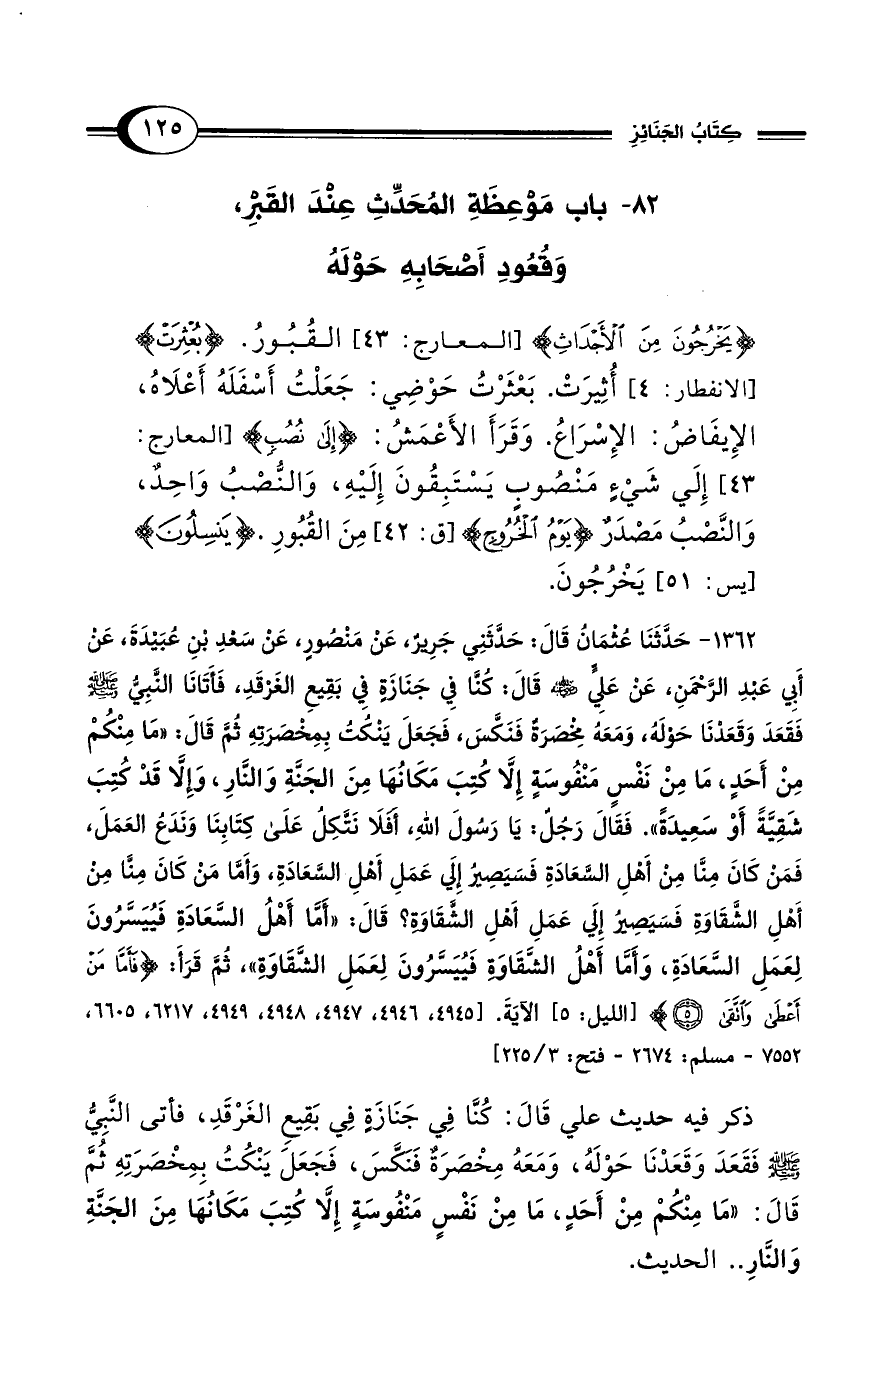 كِتَابُ الجَنَائِزِ ١٢٥
٨٢- باب مَوْعِظَةِ المُحَدِّثِ عِنْدَ القَبْرِ،
وَقُعُودِ أَصْحَابِهِ حَوْلَهُ
﴿يَخْرُجُونَ مِنَ ٱلْأَجْدَاثِ﴾ [المعارج: ٤٣] القُبُورُ. ﴿بُعْثِرَتْ﴾
[الانفطار: ٤] أُثِيرَتْ. بَعْثَرْتُ حَوْضِي: جَعَلْتُ أَسْفَلَهُ أَعْلَاهُ،
الإِيفَاضُ: الإِسْرَاعُ. وَقَرَأَ الأَعْمَشُ: ﴿إِلَى نَصْبٍ﴾ [المعارج:
٤٣] إِلَي شَيْءٍ مَنْصُوبٍ يَسْتَبِقُونَ إِلَيْهِ، وَالنُّصْبُ وَاحِدٌ،
وَالنَّصْبُ مَصْدَرٌ ﴿يَوْمُ ٱلْخُرُوجِ﴾ [ق: ٤٢] مِنَ القُبُورِ. ﴿يَنسِلُونَ﴾
[يس: ٥١] يَخْرُجُونَ.
١٣٦٢- حَدَّثَنَا عُثْمَانُ قَالَ: حَدَّثَنِي جَرِيرٌ، عَنْ مَنْصُورٍ، عَنْ سَعْدِ بْنِ عُبَيْدَةَ، عَنْ
أَبِي عَبْدِ الرَّحْمَنِ، عَنْ عَلِيٍّ رضي الله عنه قَالَ: كُنَّا فِي جَنَازَةٍ فِي بَقِيعِ الغَرْقَدِ، فَأَتَانَا النَّبِيُّ ﷺ
فَقَعَدَ وَقَعَدْنَا حَوْلَهُ، وَمَعَهُ مِخْصَرَةٌ فَنَكَّسَ، فَجَعَلَ يَنْكُتُ بِمِخْصَرَتِهِ ثُمَّ قَالَ: «مَا مِنْكُمْ
مِنْ أَحَدٍ، مَا مِنْ نَفْسٍ مَنْفُوسَةٍ إِلَّا كُتِبَ مَكَانُهَا مِنَ الجَنَّةِ وَالنَّارِ، وَإِلَّا قَدْ كُتِبَ
شَقِيَّةً أَوْ سَعِيدَةً». فَقَالَ رَجُلٌ: يَا رَسُولَ اللهِ، أَفَلَا نَتَّكِلُ عَلَىٰ كِتَابِنَا وَنَدَعُ العَمَلَ،
فَمَنْ كَانَ مِنَّا مِنْ أَهْلِ السَّعَادَةِ فَسَيَصِيرُ إِلَي عَمَلِ أَهْلِ السَّعَادَةِ، وَأَمَّا مَنْ كَانَ مِنَّا مِنْ
أَهْلِ الشَّقَاوَةِ فَسَيَصِيرُ إِلَي عَمَلِ أَهْلِ الشَّقَاوَةِ؟ قَالَ: «أَمَّا أَهْلُ السَّعَادَةِ فَيُيَسَّرُونَ
لِعَمَلِ السَّعَادَةِ، وَأَمَّا أَهْلُ الشَّقَاوَةِ فَيُيَسَّرُونَ لِعَمَلِ الشَّقَاوَةِ»، ثُمَّ قَرَأَ: ﴿فَأَمَّا مَنْ
أَعْطَىٰ وَٱتَّقَىٰ ۝٥﴾ [الليل: ٥] الآيَةَ. [٤٩٤٥، ٤٩٤٦، ٤٩٤٧، ٤٩٤٨، ٤٩٤٩، ٦٢١٧، ٦٦٠٥،
٧٥٥٢ - مسلم: ٢٦٧٤ - فتح: ٢٢٥/٣]
ذكر فيه حديث علي قَالَ: كُنَّا فِي جَنَازَةٍ فِي بَقِيعِ الغَرْقَدِ، فأتى النَّبِيُّ
ﷺ فَقَعَدَ وَقَعَدْنَا حَوْلَهُ، وَمَعَهُ مِخْصَرَةٌ فَنَكَّسَ، فَجَعَلَ يَنْكُتُ بِمِخْصَرَتِهِ ثُمَّ
قَالَ: «مَا مِنْكُمْ مِنْ أَحَدٍ، مَا مِنْ نَفْسٍ مَنْفُوسَةٍ إِلَّا كُتِبَ مَكَانُهَا مِنَ الجَنَّةِ
وَالنَّارِ.. الحديث.